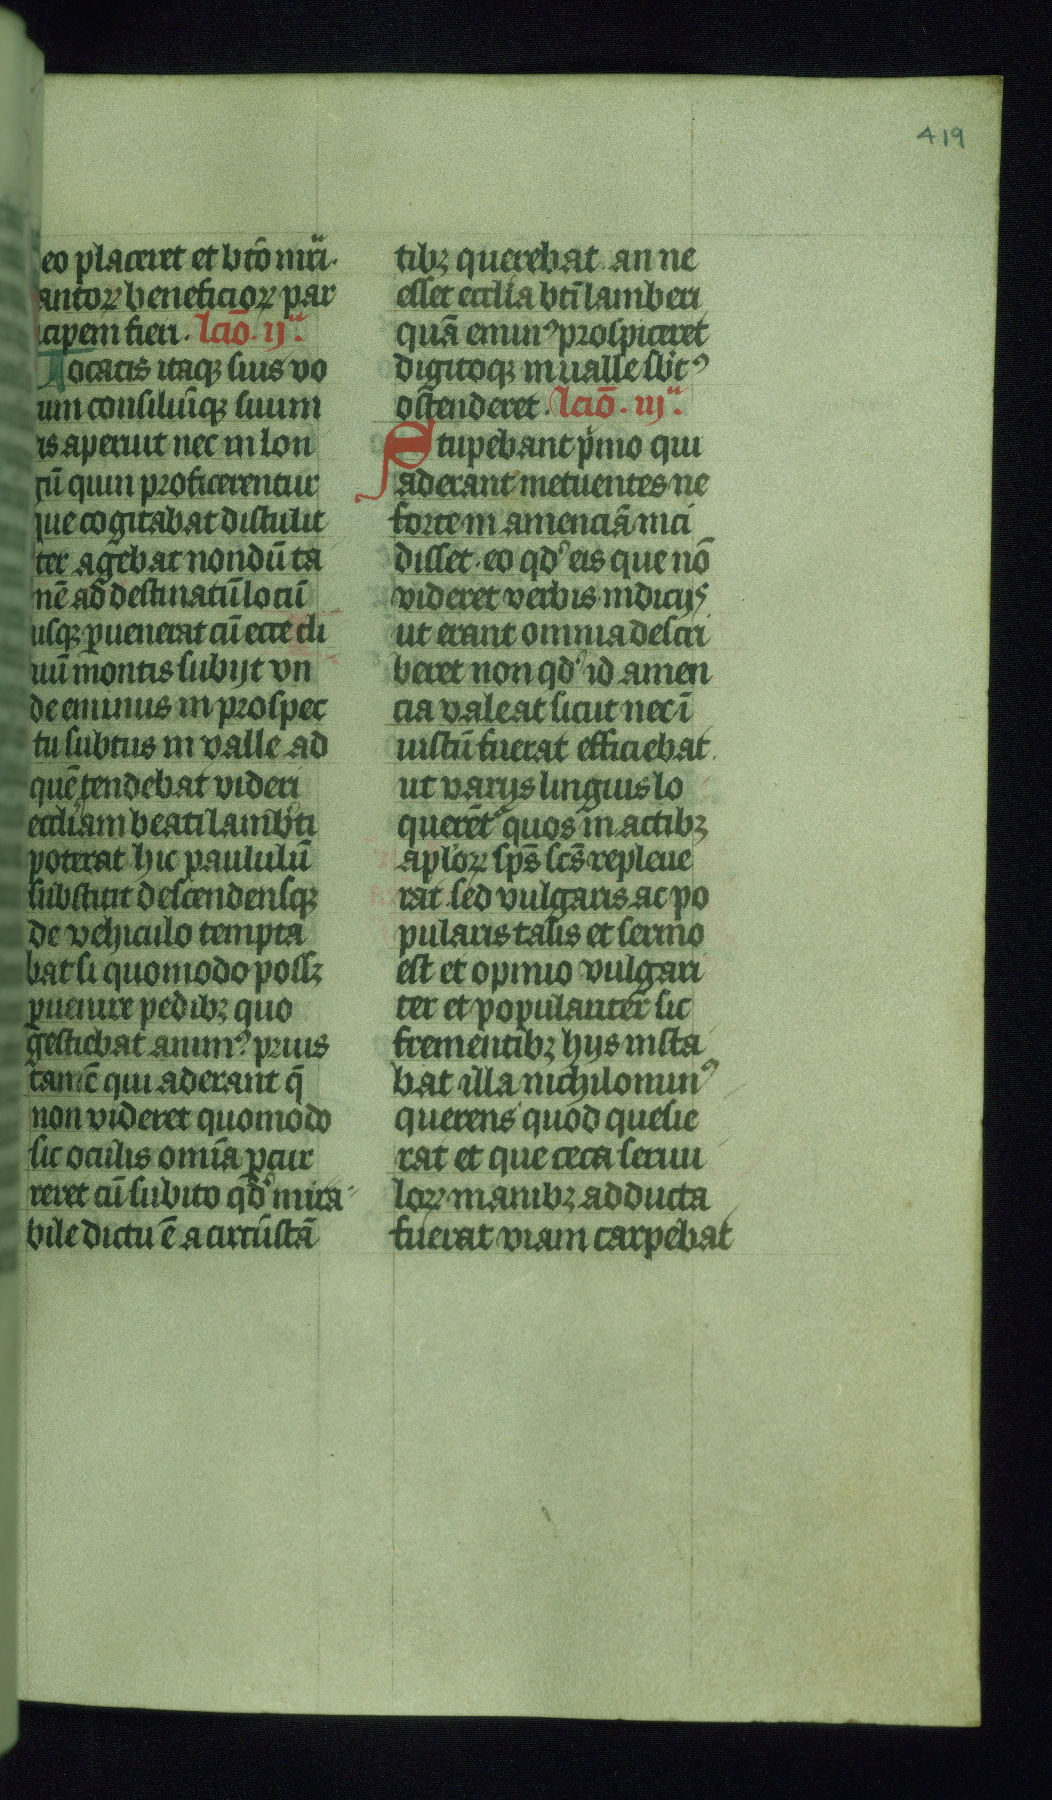 419
eo placeret et bto mri.
antoꝝ beneficioꝝ par
cipem fieri. lcio. ij.ᵃ
ocatis itaqꝫ suis vo
um consiliūqꝫ suum
is aperuit nec in lon
gū quin proficerentur
que cogitabat distulit
ter agebat nondū ta
nē ad destinatū locū
usqꝫ ꝑuenerat cū ecce cli
uū montis subijt vn
de eminus in prospec
tu subtus in valle ad
quē tendebat videri
eccliam beati lamb̄ti
poterat hic paululū
substitit descendensqꝫ
de vehiculo tempta
bat si quomodo possꝫ
ꝑuenire pedibꝫ quo
gestiebat animꝰ prius
tamē qui aderant q̄
non videret quomodo
sic oculis om̄ia ꝑcur
reret cū subito qd̓ mira
bile dictu ē a circūstā
tibꝫ querebat an ne
esset ecclia bti lamberti
quā eminꝰ prospiceret
digitoqꝫ in ualle sbicꝰ
ostenderet. lcio. iij.ᵃ
Stupebant pⁱmo qui
aderant metuentes ne
forte in amenciā inci
disset. eo qd̓ eis que nō
videret verbis indicijs
ut erant omnia descri
beret non qd̓ id amen
cia valeat sicut nec ī
iustū fuerat efficiebat.
ut varijs linguis lo
querētᷣ quos in actibꝫ
apl̓oꝝ sp̄s sc̄s repleue
rat sed vulgaris ac po
pularis talis et sermo
est et opinio vulgari
ter et populariter sic
frementibꝫ hijs insta
bat illa nichilominꝰ
querens quod quesie
rat et que ceca seruu
loꝝ manibꝫ adducta
fuerat viam carpebat